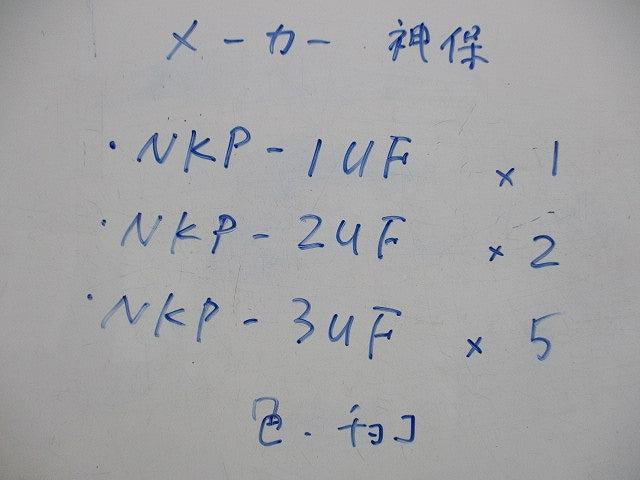 メーカー 神保
・NKP-1UF ×1
・NKP-2UF ×2
・NKP-3UF ×5
色・チョコ